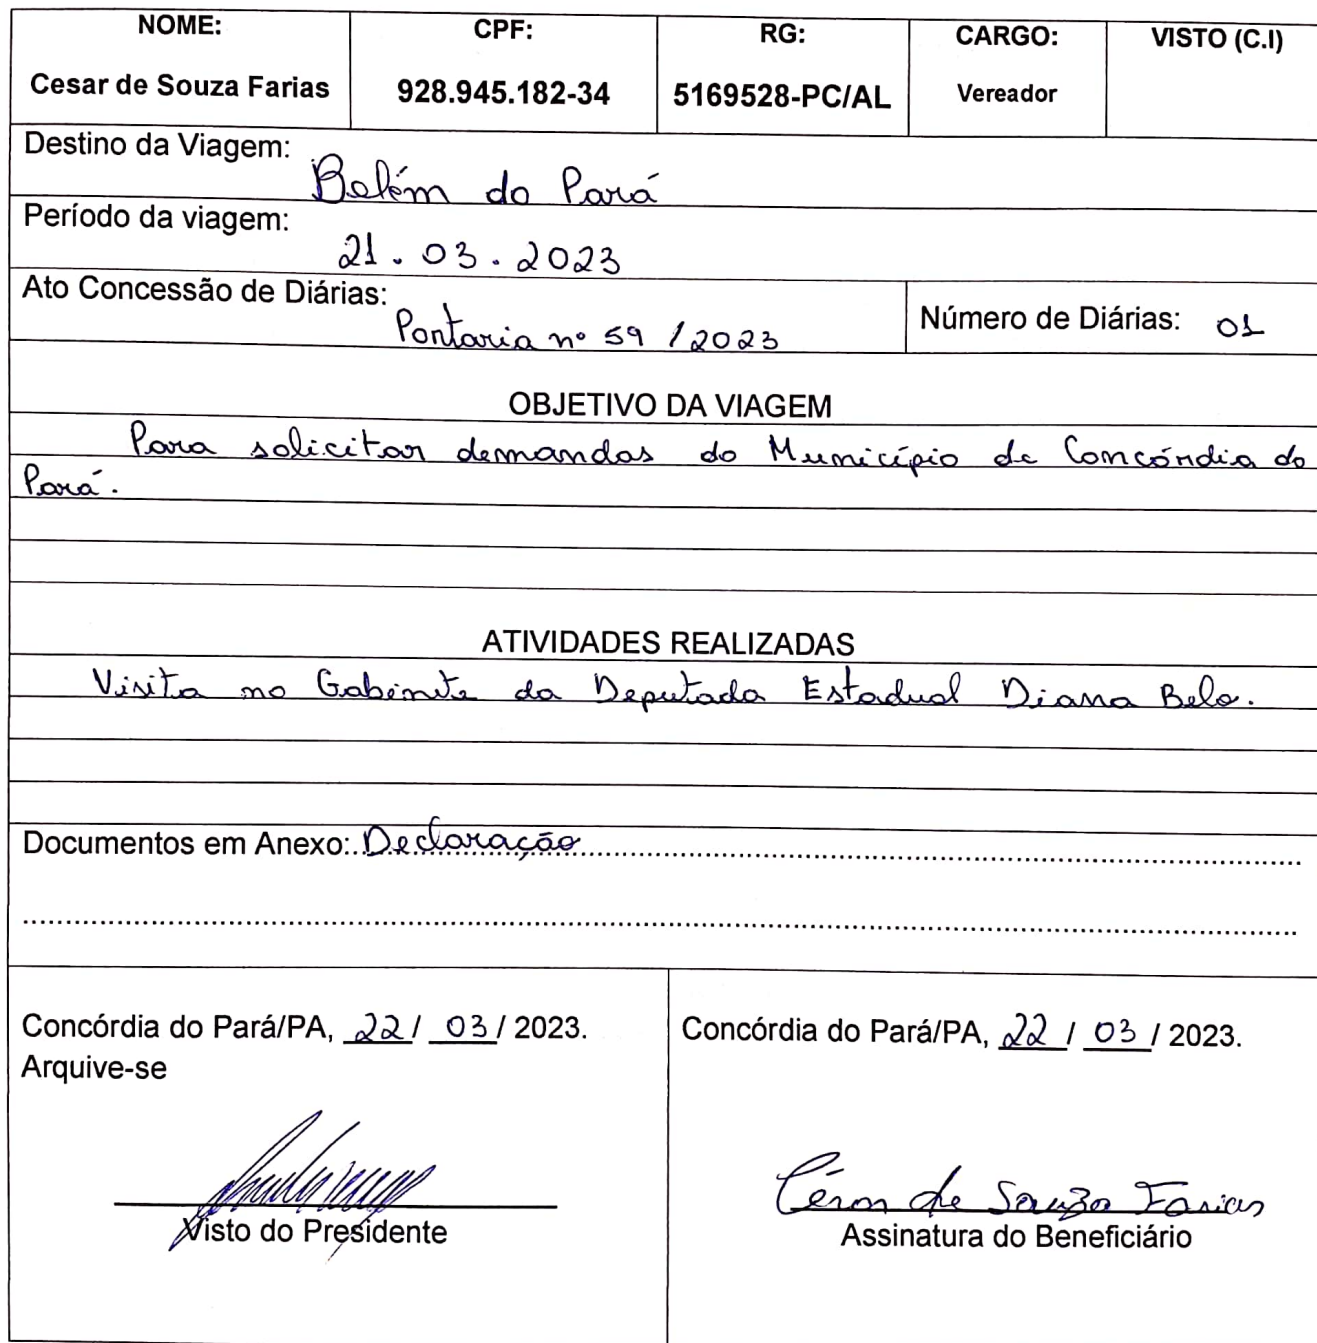 NOME: CPF: RG: CARGO: VISTO (C.I)
Cesar de Souza Farias 928.945.182-34 5169528-PC/AL Vereador
Destino da Viagem:
Belém do Pará
Período da viagem:
21.03.2023
Ato Concessão de Diárias:
Portaria nº 59 /2023
Número de Diárias: 01
OBJETIVO DA VIAGEM
Para solicitar demandas do Município de Concórdia do
Pará.
ATIVIDADES REALIZADAS
Visita no Gabinete da Deputada Estadual Diana Belo.
Documentos em Anexo: Declaração
Concórdia do Pará/PA, 22/ 03/ 2023.
Arquive-se
Visto do Presidente
Concórdia do Pará/PA, 22 / 03 / 2023.
César de Souza Farias
Assinatura do Beneficiário